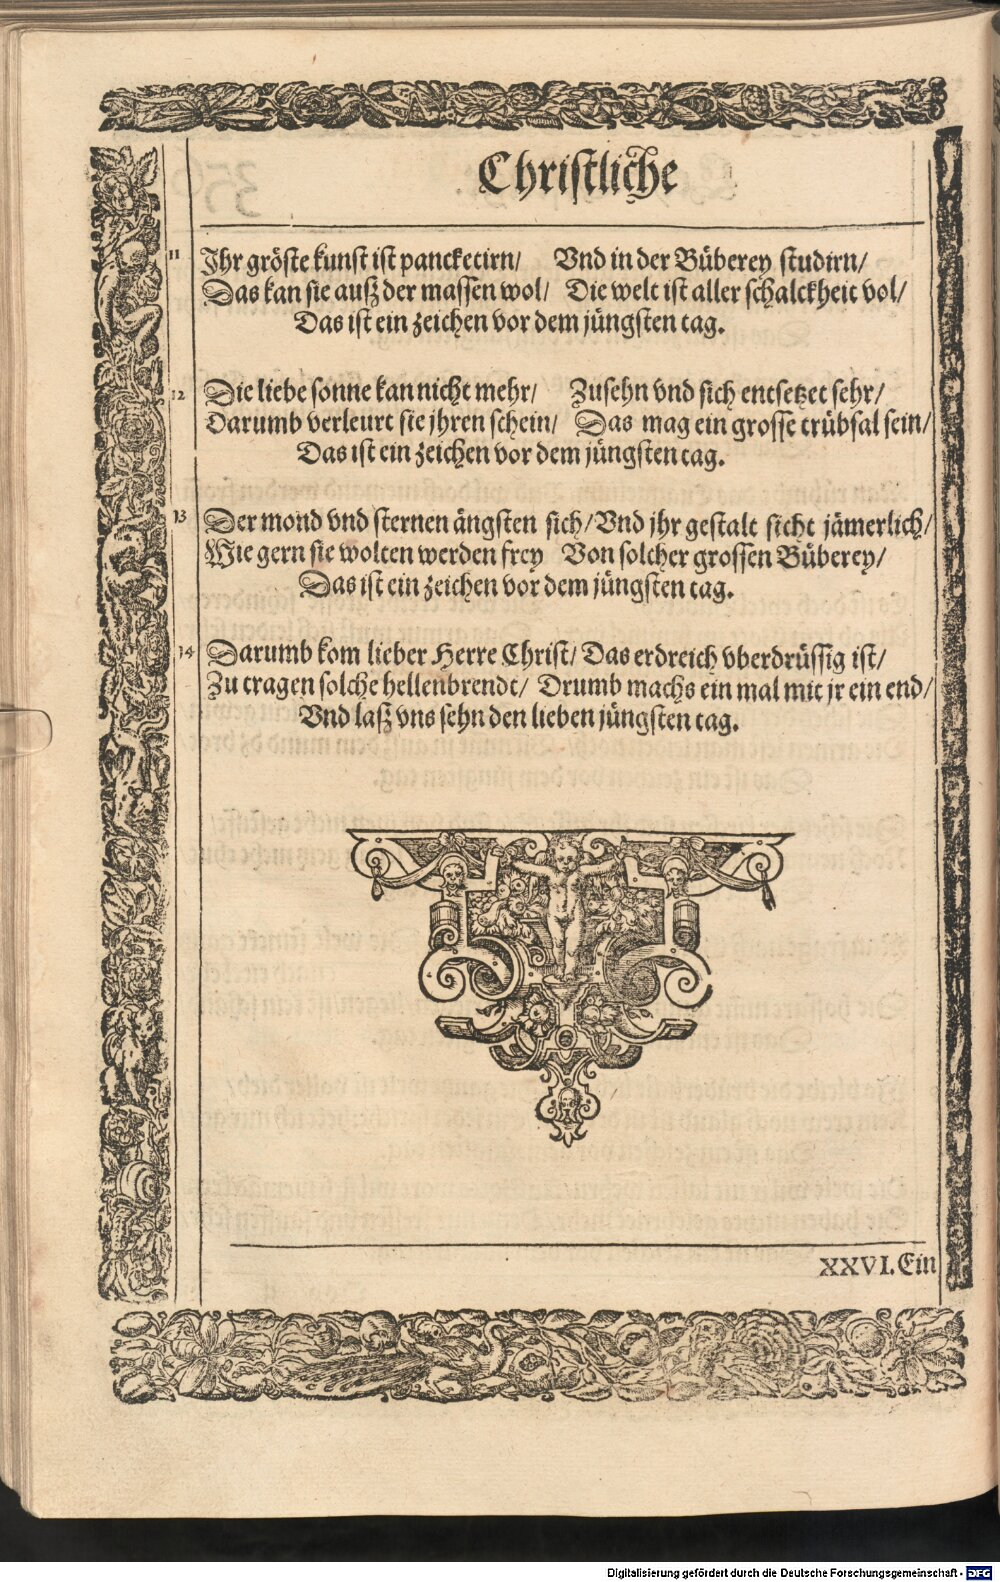 Christliche
11 Ihr gröste kunst ist panckecirn/ Vnd in der Büberey studirn/
Das kan sie auß der massen wol/ Die welt ist aller schalckheit vol/
Das ist ein zeichen vor dem jüngsten tag.
12 Die liebe sonne kan nicht mehr/ Zusehn vnd sich entsetzet sehr/
Darumb verleurt sie jhren schein/ Das mag ein grosse trübsal sein/
Das ist ein zeichen vor dem jüngsten tag.
13 Der mond vnd sternen ängsten sich/ Vnd jhr gestalt sicht jämerlich/
Wie gern sie wolten werden frey Von solcher grossen Büberey/
Das ist ein zeichen vor dem jüngsten tag.
14 Darumb kom lieber Herre Christ/ Das erdreich vberdrüssig ist/
Zu tragen solche hellenbrendt/ Drumb machs ein mal mit jr ein end/
Vnd laß vns sehn den lieben jüngsten tag.
XXVI. Ein
Digitalisierung gefördert durch die Deutsche Forschungsgemeinschaft - DFG